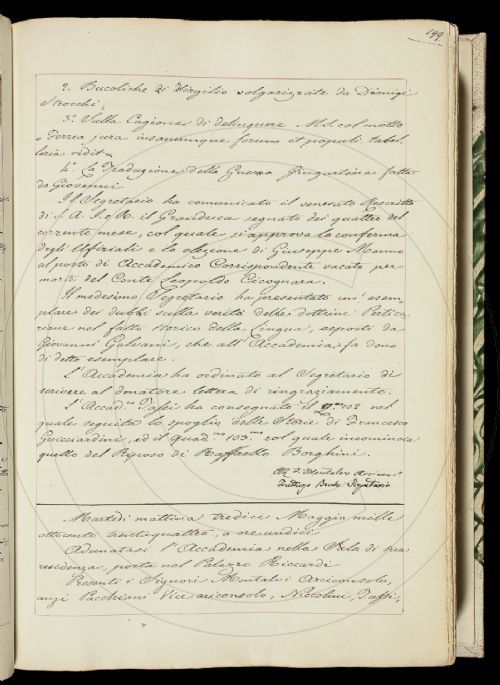 199
2. Bucoliche di Virgilio volgarizzate da Dionigi
Strocchi;
3.° Sulla Cagione di delinquere M.S. col motto
Ferrea jura insanumque forum et populi tabul-
laria vidit
4. La Traduzione della Guerra Giugurtina fatta
da Giovanni
Il Segretario ha comunicato il venerato Rescritto
di S. A. I. e R. il Granduca segnato dei quattro del
corrente mese, col quale si approva la conferma
degli Ufiziali e la elezione di Giuseppe Manno
al posto di Accademico Corrispondente vacato per
morte del Conte Leopoldo Cicognara.
Il medesimo Segretario ha presentato un' esem-
plare dei dubbi sulla verità delle dottrine Pertica-
riane nel fatto storico della Lingua, esposti da
Giovanni Galvani, che all' Accademia fa dono
di detto esemplare.
L' Accademia ha ordinato al Segretario di
scrivere al donatore lettera di ringraziamento.
L' Accad.co Tassi ha consegnato il 102 nel
quale seguita lo spoglio delle Storie di Francesco
Guicciardini, ed il Quad.no 103.mo col quale incomincia
quello del Riposo di Raffaello Borghini.
Montalvi Arcicons.o
Fruttuoso Becchi Segretario
Martedì mattina tredici Maggio mille
ottocento trentaquattro, a ore undici
Adunatasi l' Accademia nella Sala di sua
residenza, posta nel Palazzo Riccardi
Presenti i Signori Montalvi Arciconsolo,
Pacchiani Vice arciconsolo, Niccolini, Tassi,